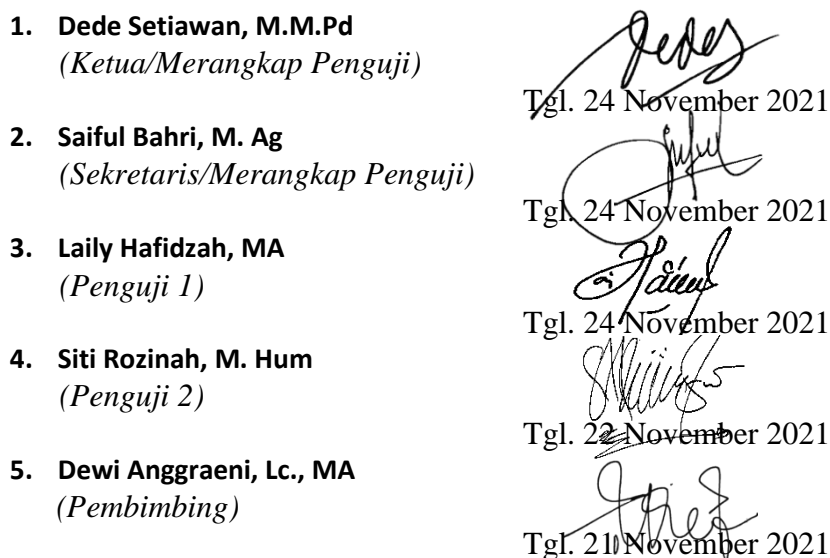 1. Dede Setiawan, M.M.Pd
(Ketua/Merangkap Penguji)
Tgl. 24 November 2021
2. Saiful Bahri, M. Ag
(Sekretaris/Merangkap Penguji)
Tgl. 24 November 2021
3. Laily Hafidzah, MA
(Penguji 1)
Tgl. 24 November 2021
4. Siti Rozinah, M. Hum
(Penguji 2)
Tgl. 22 November 2021
5. Dewi Anggraeni, Lc., MA
(Pembimbing)
Tgl. 21 November 2021